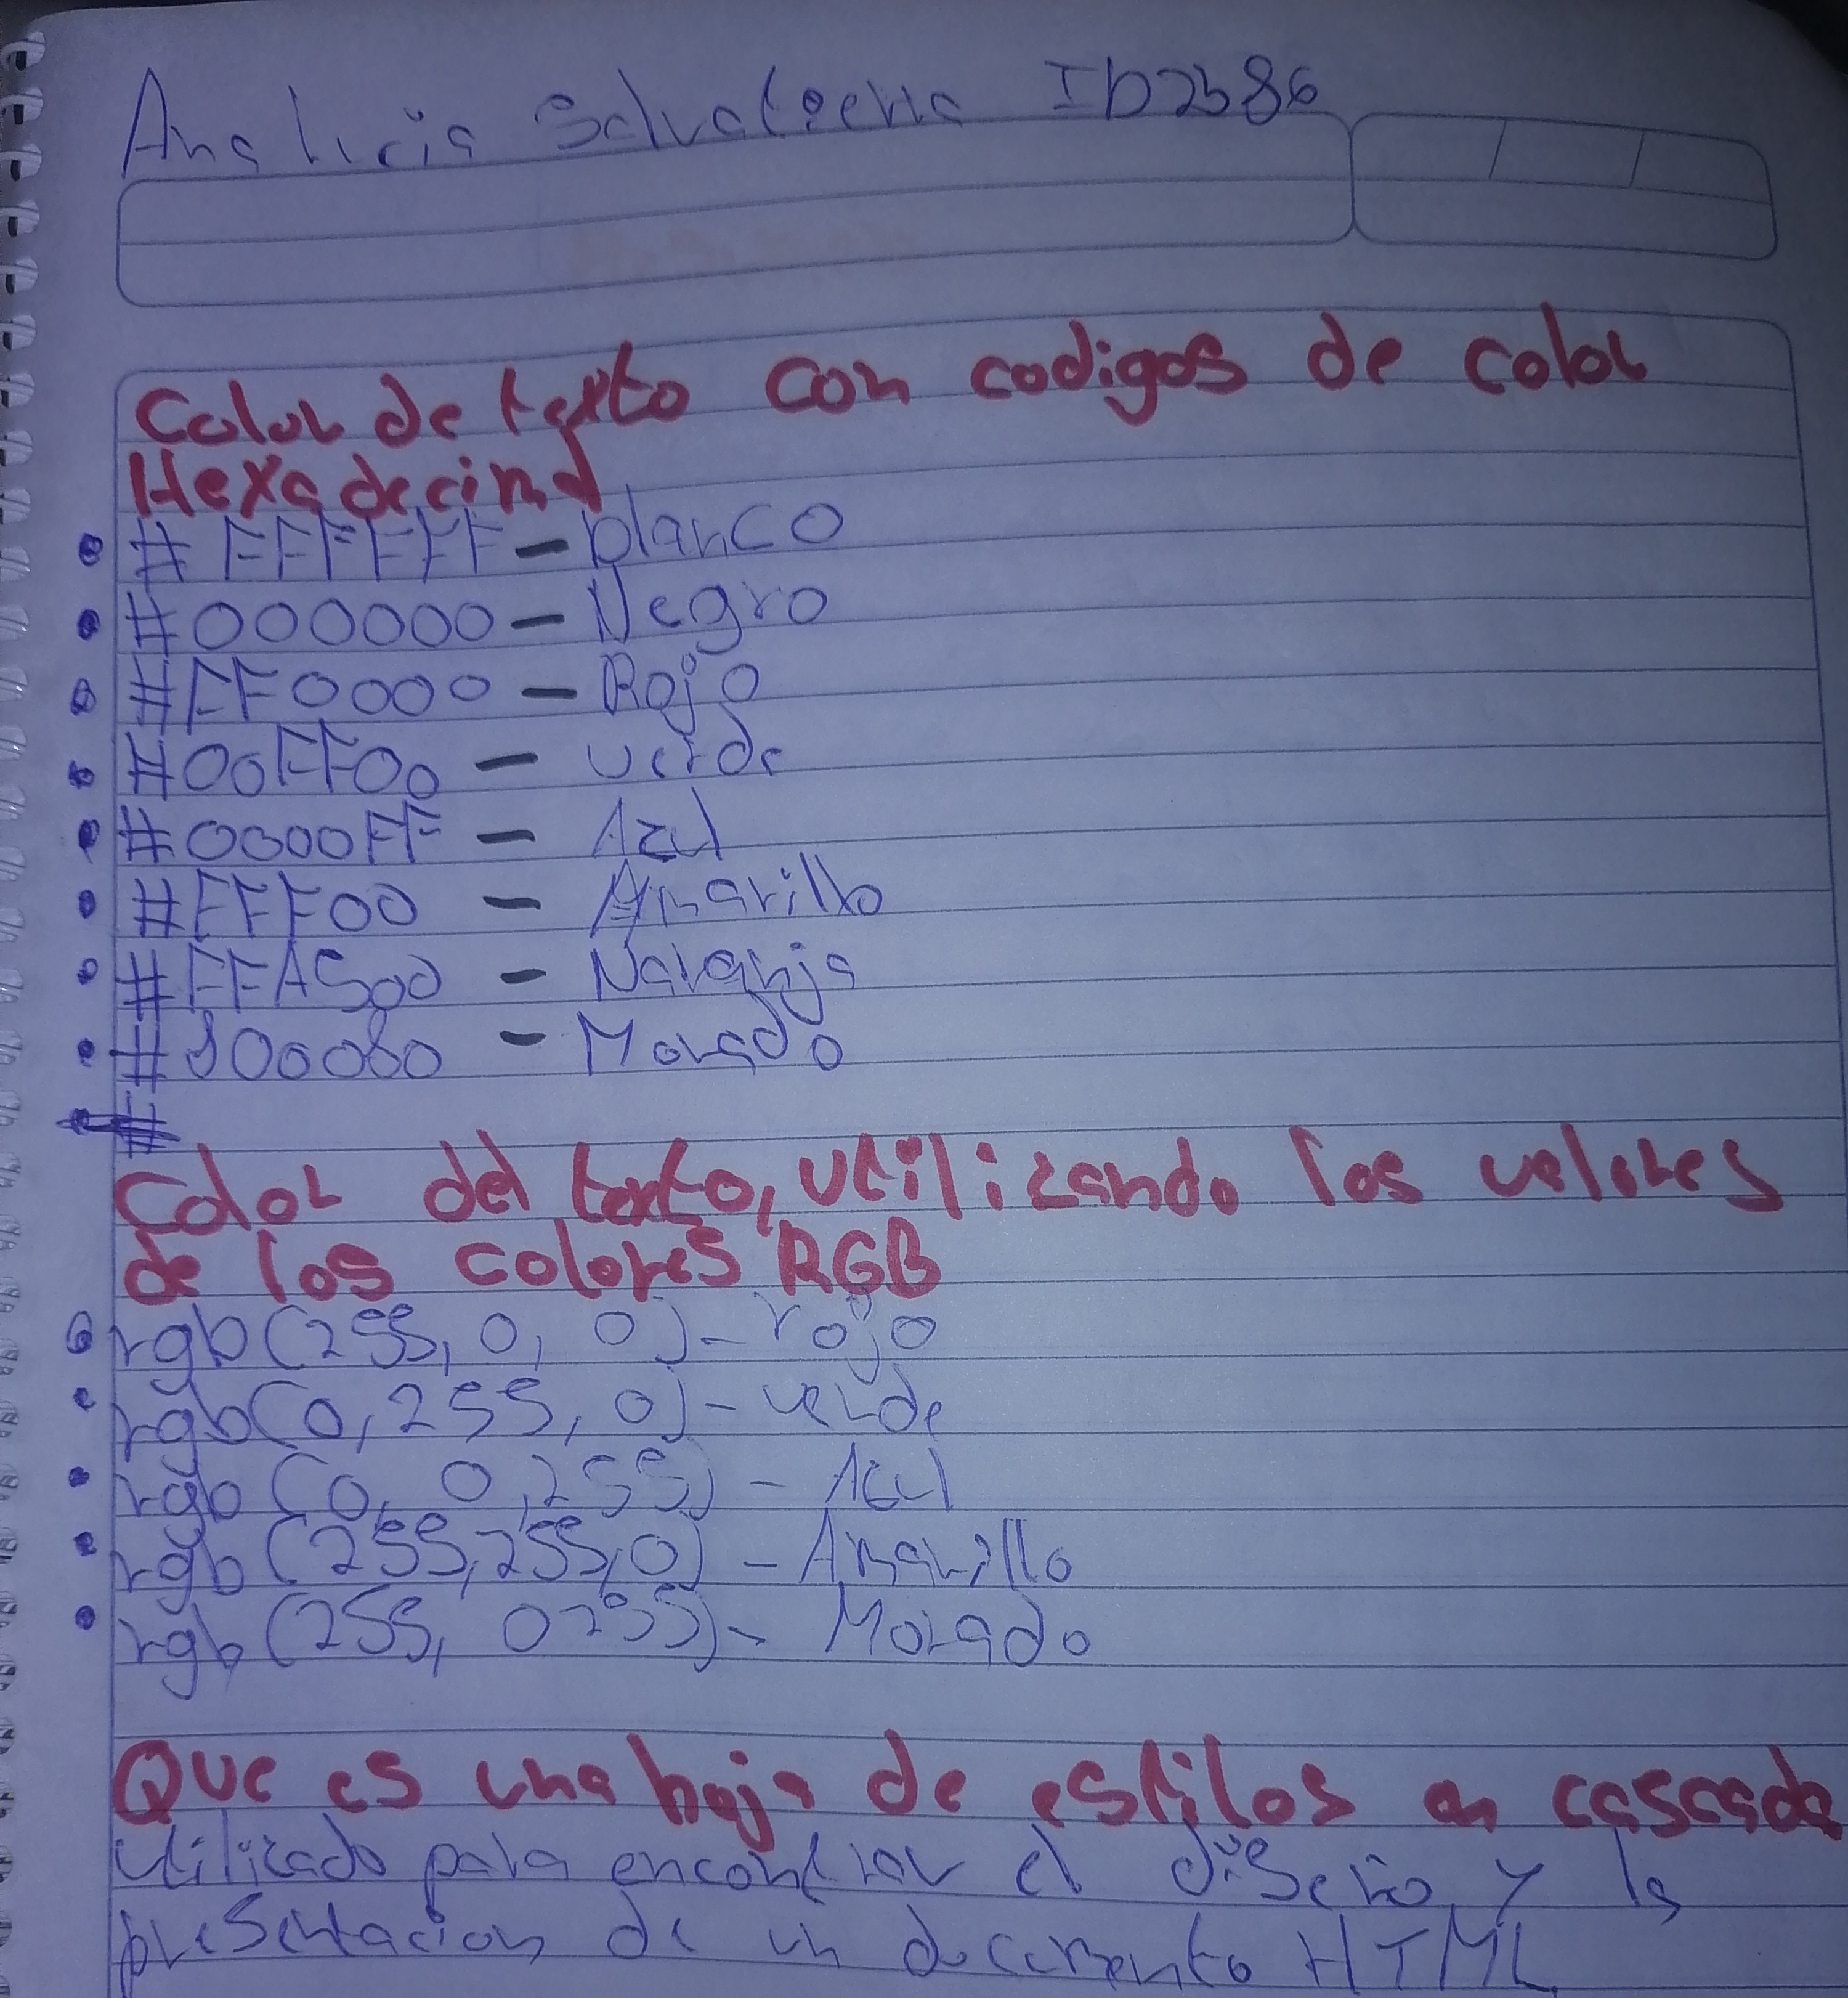 Analicia Salvatierra ID2586
Color de texto con codigos de color
Hexadecimal
#FFFFFF - blanco
#000000 - Negro
#FF0000 - Rojo
#00FF00 - verde
#0000FF - Azul
#FFFF00 - Amarillo
#FFA500 - Naranja
#800080 - Morado
#
Color del texto, utilizando los valores
de los colores RGB
rgb(255, 0, 0) - rojo
rgb(0, 255, 0) - verde
rgb (0, 0, 255) - Azul
rgb (255, 255, 0) - Amarillo
rgb (255, 0 255) - Morado
Que es una hoja de estilos en cascada
Utilizado para encontrar el diseño y la
presentacion de un documento HTML